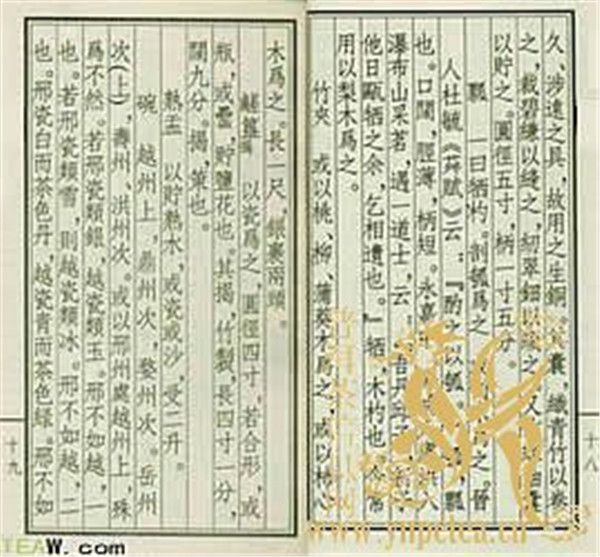 久、涉遠之具，故用之生銅。囊，織青竹以卷
之，裁碧縑以縫之，紉翠鈿以綴之，又
以貯之。圓徑五寸，柄一寸五分。
瓢　一曰犧杓。剖瓠爲之，之。晉
人杜毓《荈賦》云：『酌之以瓠。瓢
也。口闊，脛薄，柄短。永嘉
瀑布山采茗，遇一道士，云：吾丹丘子
他日甌犧之余，乞相遺也。』犧，木杓也，今常
用以梨木爲之。
竹夾　或以桃、柳、蒲葵木爲之，或以柿心
十八
木爲之。長一尺，銀裹兩頭。
鹺簋　以瓷爲之，圓徑四寸，若合形，或
瓶，或罍，貯鹽花也。其揭，竹製，長四寸一分，
闊九分。揭，策也。
熟盂　以貯熟水，或瓷或沙，受二升。
碗　越州上，鼎州次，婺州次。岳州
次(上)，壽州、洪州次。或以邢州處越州上，殊
爲不然。若邢瓷類銀，越瓷類玉。邢不如越，一
也。若邢瓷類雪，則越瓷類冰。邢不如越，二
也。邢瓷白而茶色丹，越瓷青而茶色緑。邢不如
十九
TEAW.com
www.ynpetea.cn